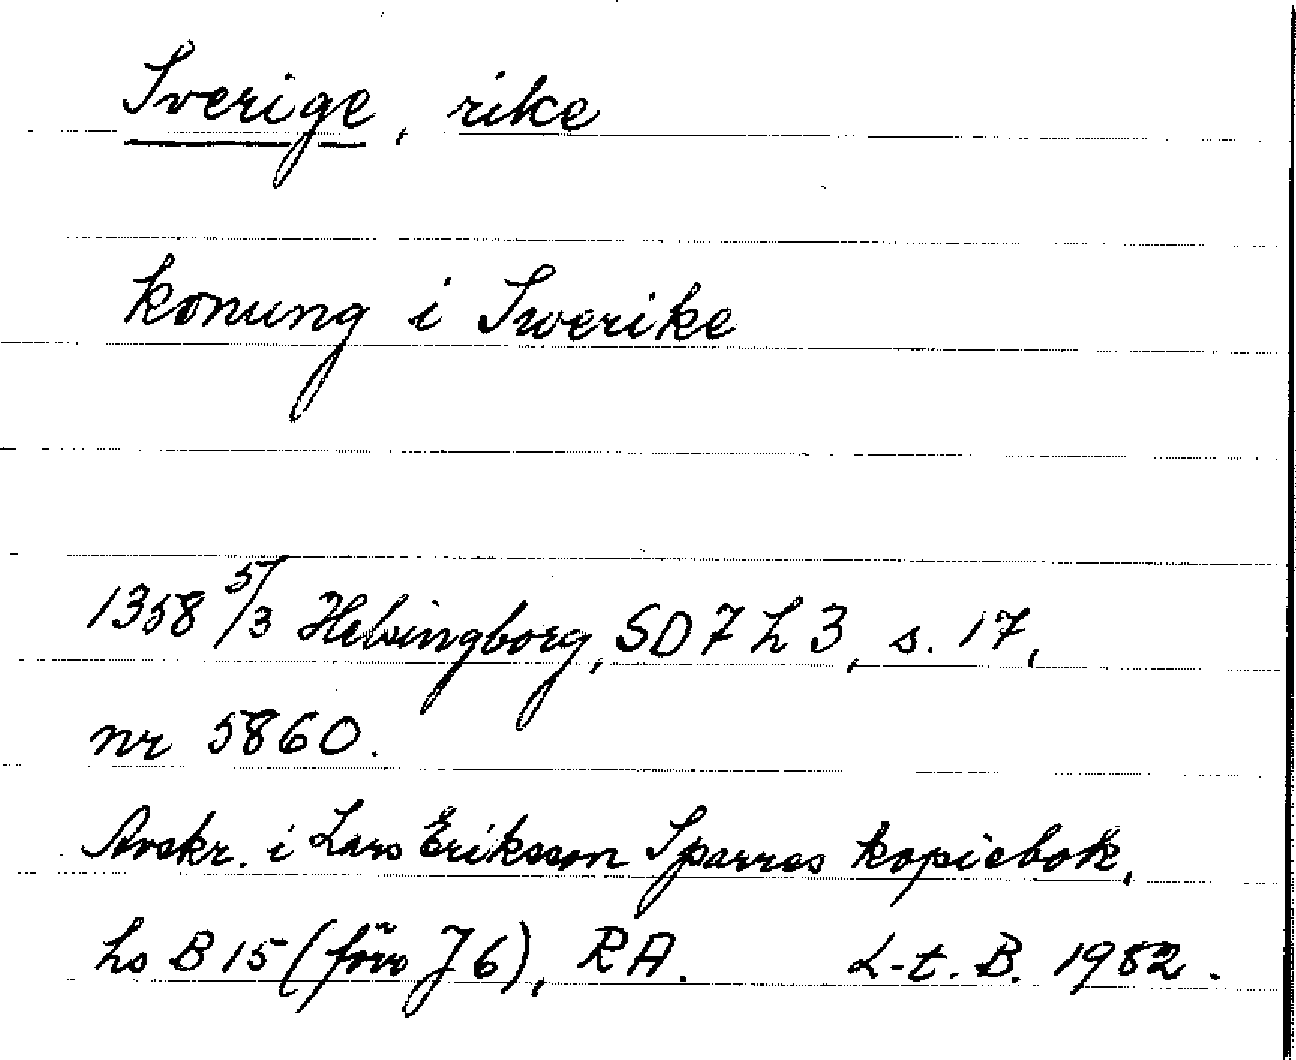 Sverige, rike
konung i Swerike
1358 5/3 Helsingborg, SD 7 h 3, s. 17,
nr 5860.
Avskr. i Lars Eriksson Sparres kopiebok,
hs B 15 (förv J 6), RA. L-t. B. 1982.